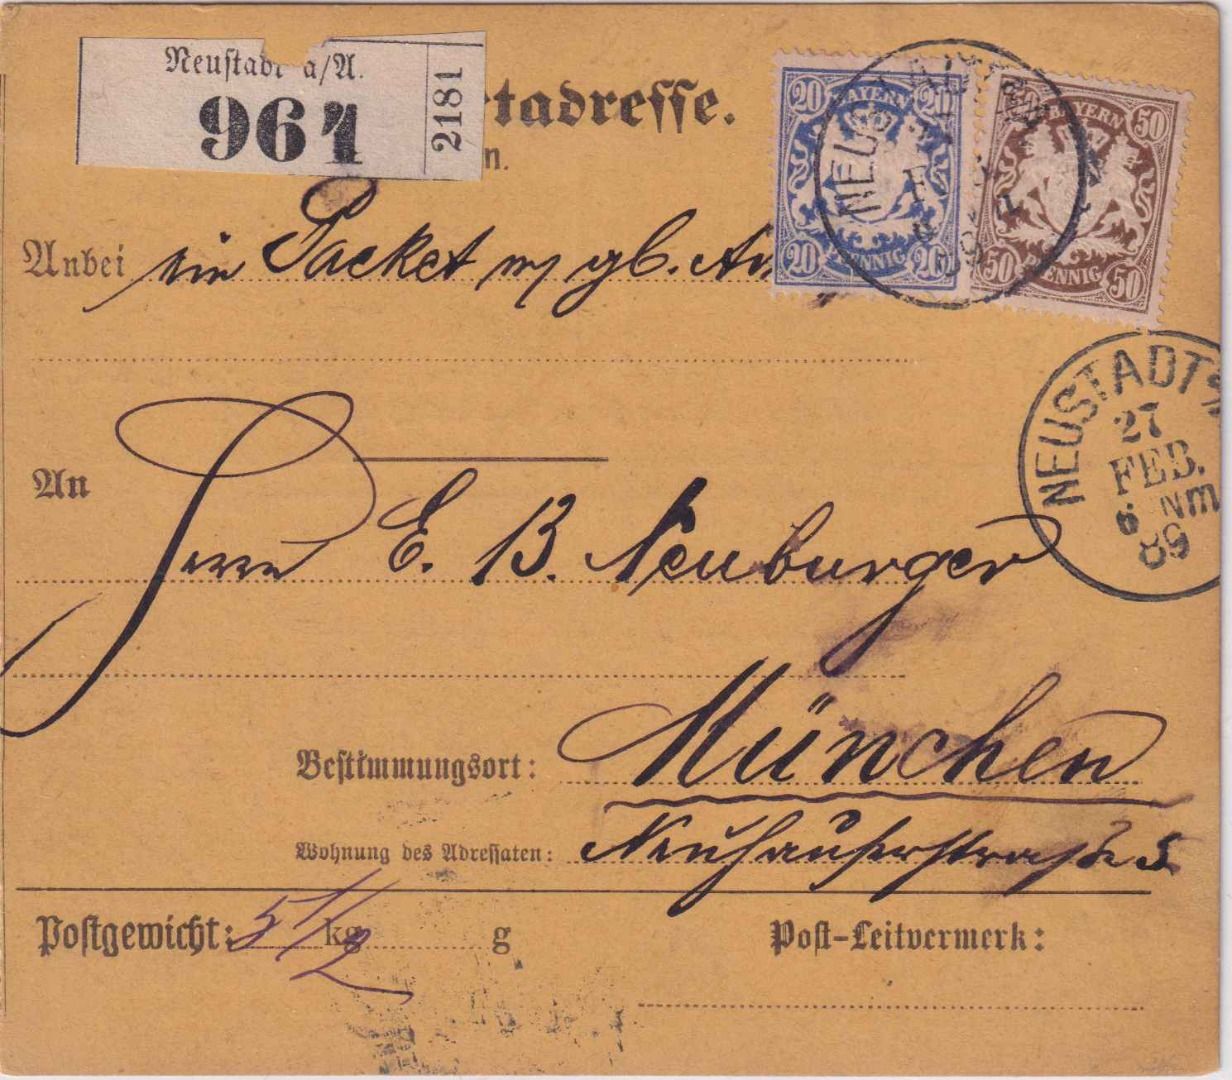 Neustadt a/A.
964
2181
tadresse.
n.
20 BAYERN 20
20 PFENNIG 20
BAYERN 50
50 PFENNIG 50
NEUS
Anbei ein Packet m/ gb. An
NEUSTADT
27
FEB.
6 NM
89
An
Herrn E. B. Neuburger
Bestimmungsort: München
Wohnung des Adressaten: Neuhauserstraße 5
Postgewicht: 5 1/2 kg g
Post-Leitvermerk: